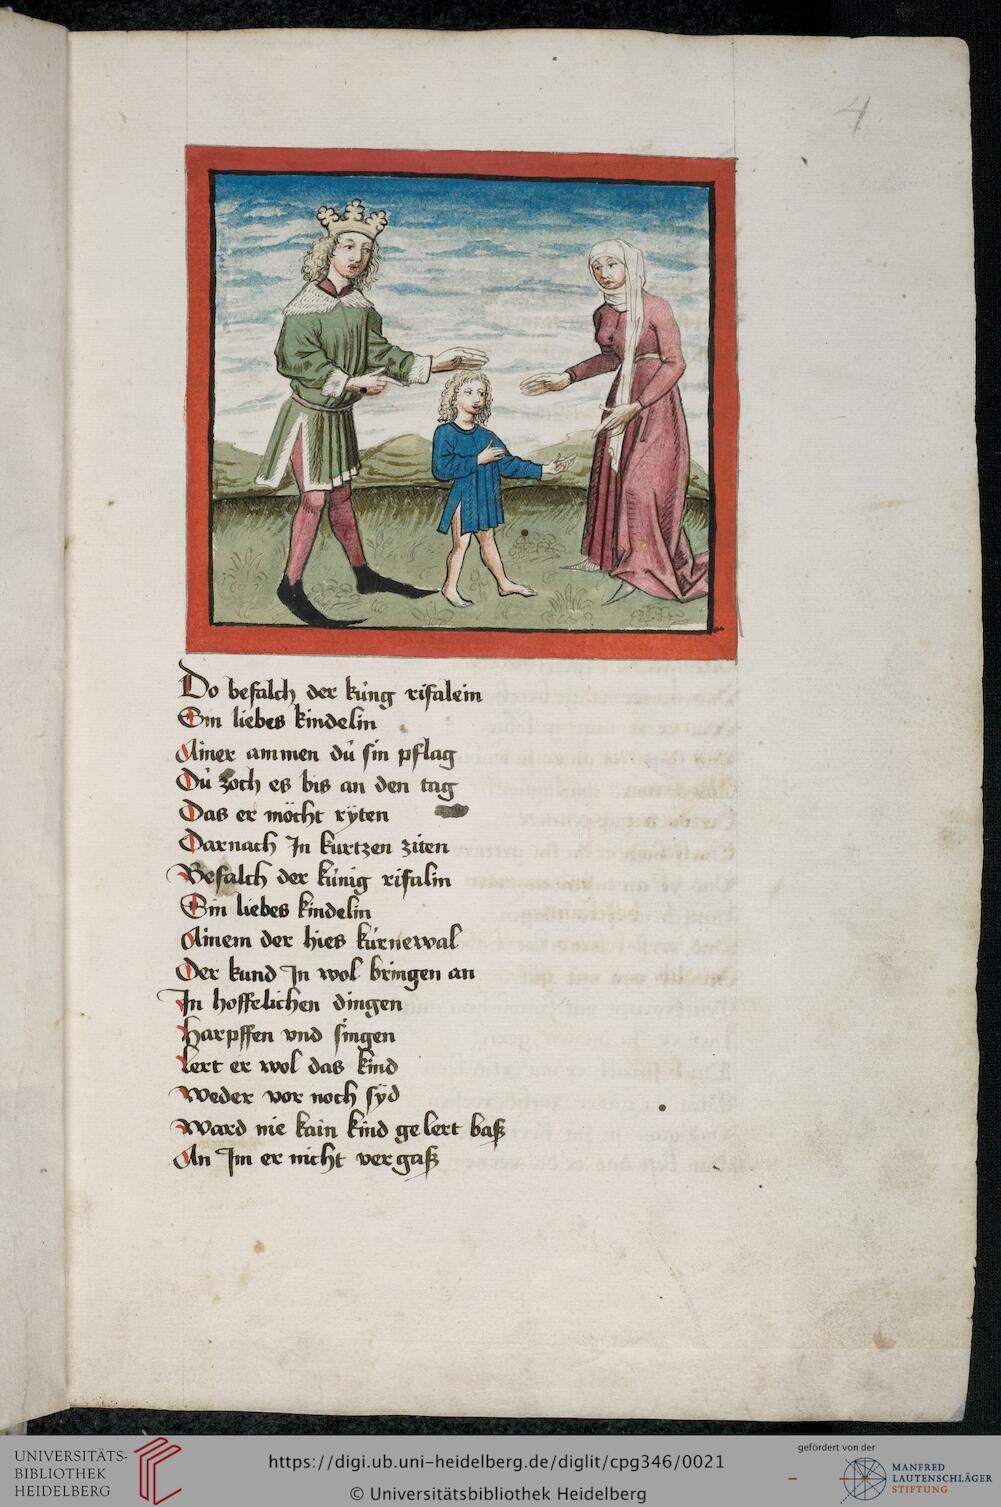 4
Do befalch der kúng rifalein
Sin liebes kindelin
Ainer ammen dú sin pflag
Dú zoch es bis an den tag
Das er möcht rÿten
Darnach In kurtzen ziten
Befalch der kúnig rifalin
Sin liebes kindelin
Ainem der hies kúrnewal
Der kund In wol bringen an
In hoffelichen dingen
Harpffen vnd singen
lert er wol das kind
Weder vor noch sÿd
Ward nie kain kind gelert baß
An Im er nicht vergaß
UNIVERSITÄTS-
BIBLIOTHEK
HEIDELBERG
https://digi.ub.uni-heidelberg.de/diglit/cpg346/0021
© Universitätsbibliothek Heidelberg
gefördert von der
MANFRED
LAUTENSCHLÄGER
STIFTUNG